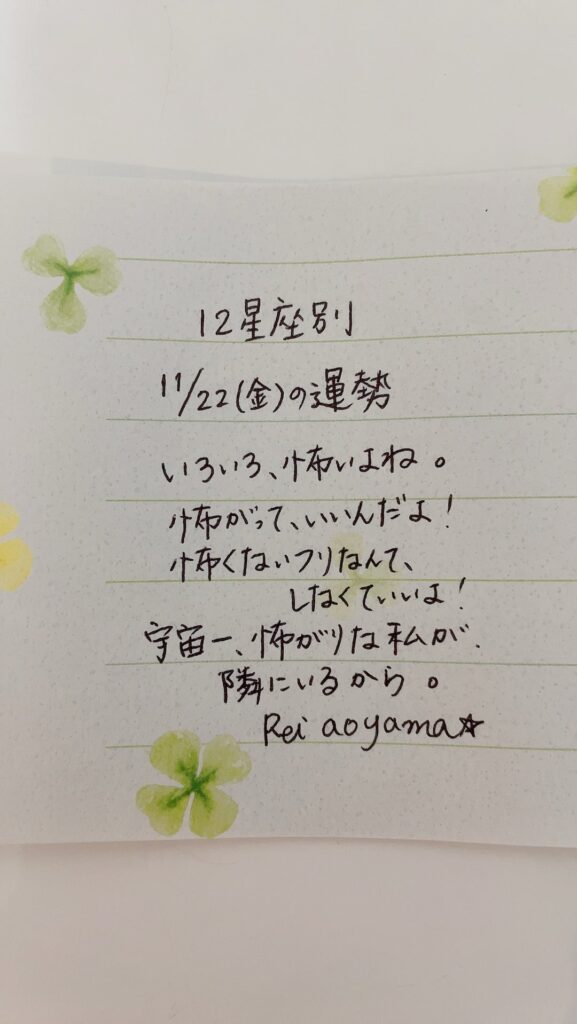 12星座別
11/22(金)の運勢
いろいろ、怖いよね。
怖がって、いいんだよ!
怖くないフリなんて、
しなくていいよ!
宇宙一、怖がりな私が、
隣にいるから。
Rei aoyama☆